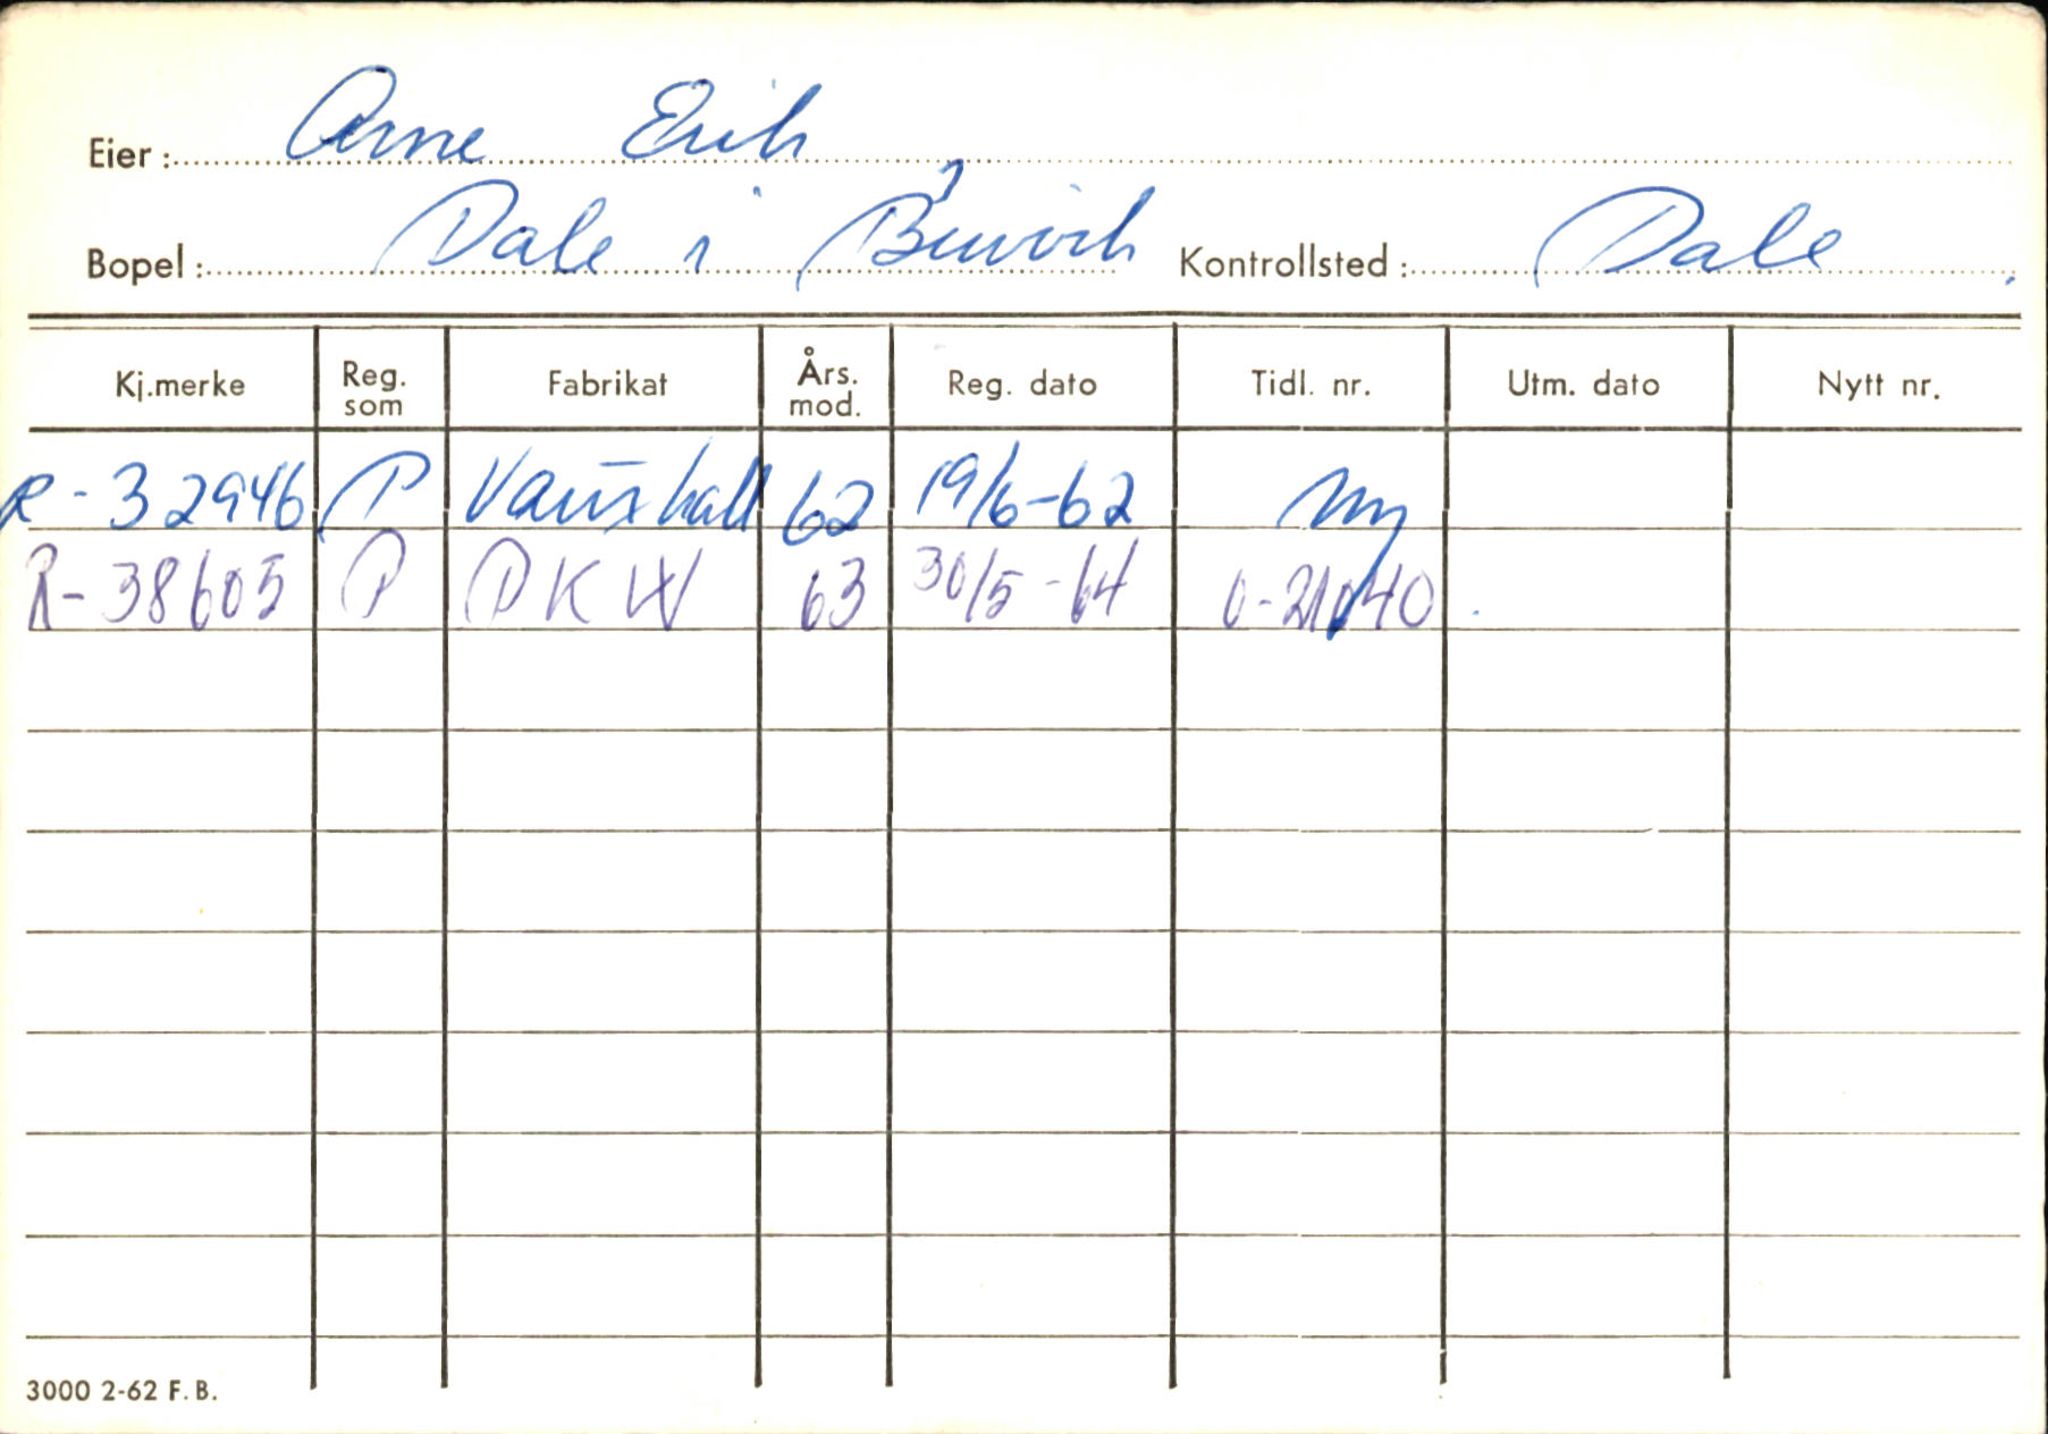 Eier: Arne Erik
Bopel: Dale i Bruvik Kontrollsted: Dale
Kj.merke Reg. som Fabrikat Års. mod. Reg. dato Tidl. nr. Utm. dato Nytt nr.
R-32946 P Vauxhall 62 19/6-62 Ny
R-38605 P DKW 63 30/5-64
3000 2-62 F.B.